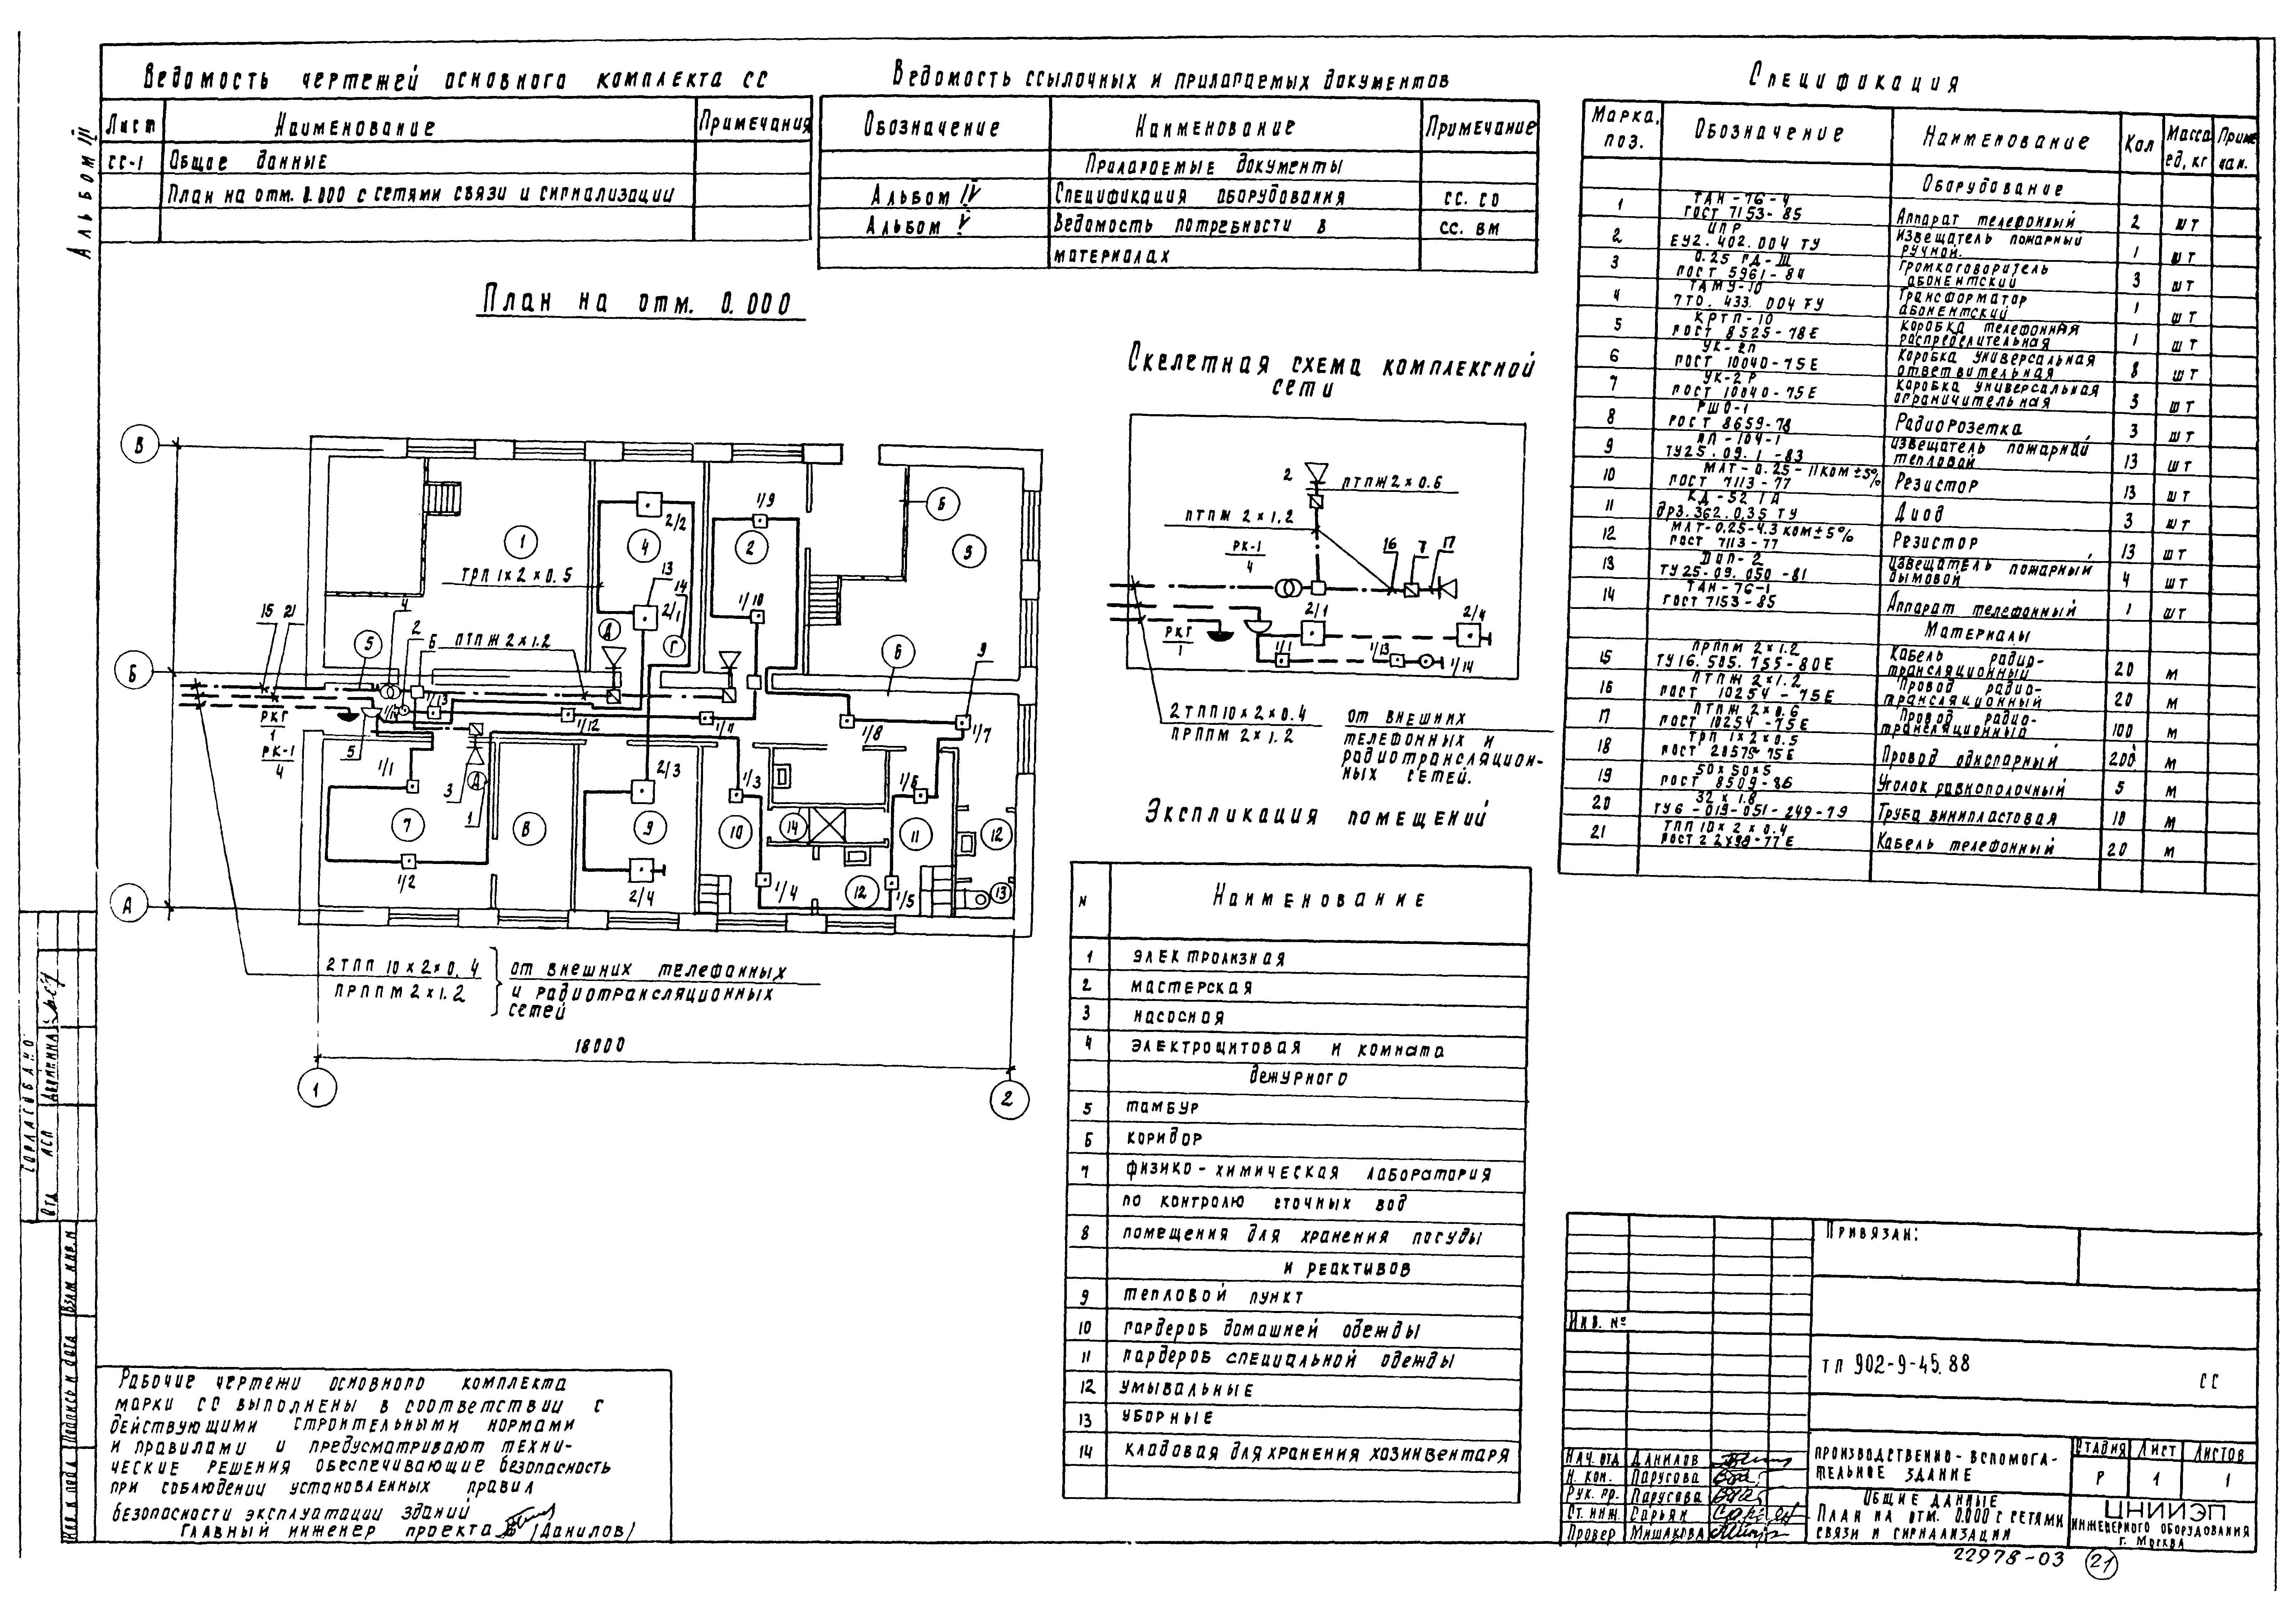 Альбом III
Ведомость чертежей основного комплекта СС
Лист Наименование Примечания
СС-1 Общие данные
План на отм. 0.000 с сетями связи и сигнализации
Ведомость ссылочных и прилагаемых документов
Обозначение Наименование Примечание
Прилагаемые документы
Альбом IV Спецификация оборудования СС. СО
Альбом V Ведомость потребности в СС. ВМ
материалах
Спецификация
Марка, поз. Обозначение Наименование Кол Масса ед, кг Приме чан.
Оборудование
1 ТАН-76-4 ГОСТ 7153-85 Аппарат телефонный 2 шт
2 ИПР ЕУ2.402.004 ТУ Извещатель пожарный ручной. 1 шт
3 0.25 ГД-III ГОСТ 5961-84 Громкоговоритель абонентский 3 шт
4 ТАМУ-10 7ТО.433.004 ТУ Трансформатор абонентский 1 шт
5 КРТП-10 ГОСТ 8525-78Е Коробка телефонная распределительная 1 шт
6 УК-2П ГОСТ 10040-75Е Коробка универсальная ответвительная 8 шт
7 УК-2Р ГОСТ 10040-75Е Коробка универсальная ограничительная 3 шт
8 РШО-1 ГОСТ 8659-78 Радиорозетка 3 шт
9 ИП-104-1 ТУ25.09.1-83 Извещатель пожарный тепловой 13 шт
10 МЛТ-0.25-11КОМ±5% ГОСТ 7113-77 Резистор 13 шт
11 КД-521А др3.362.035 ТУ Диод 3 шт
12 МЛТ-0.25-4.3 КОМ±5% ГОСТ 7113-77 Резистор 13 шт
13 ДИП-2 ТУ25-09.050-81 Извещатель пожарный дымовой 4 шт
14 ТАН-76-1 ГОСТ 7153-85 Аппарат телефонный 1 шт
Материалы
15 ПРППМ 2×1.2 ТУ16.505.755-80Е Кабель радиотрансляционный 20 м
16 ПТПЖ 2×1.2 ГОСТ 10254-75Е Провод радио-трансляционный 20 м
17 ПТПЖ 2×0.6 ГОСТ 10254-75Е Провод радио-трансляционный 100 м
18 ТРП 1×2×0.5 ГОСТ 20575-75Е Провод однопарный 200 м
19 50×50×5 ГОСТ 8509-86 Уголок равнополочный 5 м
20 32×1.8 ТУ6-019-051-249-79 Труба винипластовая 10 м
21 ТПП 10×2×0.4 Кабель телефонный 20 м
План на отм. 0.000
В
Б
А
1
2
3
4
5
6
7
8
9
10
11
12
13
14
1/1
1/2
1/3
1/4
1/5
1/6
1/7
1/8
1/9
1/10
1/11
1/12
1/13
1/14
2/1
2/2
2/3
2/4
ТРП 1×2×0.5
15 21
ПТПЖ 2×1.2
РКГ
1
РК-1
4
2ТПП 10×2×0.4
ПРППМ 2×1.2
от внешних телефонных
и радиотрансляционных
сетей
18000
1
2
Скелетная схема комплексной
сети
2
ПТПЖ 2×0.6
ПТПЖ 2×1.2
РК-1
4
16 7 17
РКГ
1
2/1
2/4
1/1
1/13
1/14
2ТПП10×2×0.4
ПРППМ 2×1.2
от внешних
телефонных и
радиотрансляцион-
ных сетей.
Экспликация помещений
N Наименование
1 электролизная
2 мастерская
3 насосная
4 электрощитовая и комната
дежурного
5 тамбур
6 коридор
7 физико-химическая лаборатория
по контролю сточных вод
8 помещения для хранения посуды
и реактивов
9 тепловой пункт
10 гардероб домашней одежды
11 гардероб специальной одежды
12 умывальные
13 уборные
14 кладовая для хранения хозинвентаря
Рабочие чертежи основного комплекта
марки СС выполнены в соответствии с
действующими строительными нормами
и правилами и предусматривают техни-
ческие решения обеспечивающие безопасность
при соблюдении установленных правил
безопасности эксплуатации зданий
Главный инженер проекта /Данилов/
Согласовано
Отд АСП
Взам инв. N
Подпись и дата
Инв. N подл
Привязан:
Инв. №
ТП 902-9-45.88
СС
Нач. отд Данилов
Н. кон. Парусова
Рук. гр. Парусова
Ст. инж. Сарьян
Провер Мишакова
Производственно-вспомога-
тельное здание
Стадия Лист Листов
Р 1 1
Общие данные
План на отм. 0.000 с сетями
связи и сигнализации
ЦНИИЭП
инженерного оборудования
г. Москва
22978-03 21